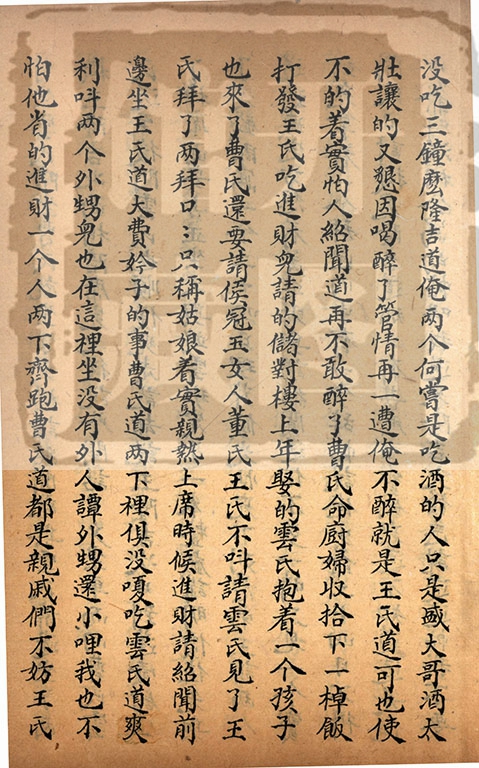 没吃三鐘麽隆吉道俺两个何嘗是吃酒的人只是盛大哥酒太
壯讓的又懇因喝醉了管情再一遭俺不醉就是王氏道可也使
不的着實怕人紹聞道再不敢醉了曹氏命廚婦收拾下一棹飯
打發王氏吃進財兒請的儲對樓上年娶的雲氏抱着一个孩子
也來了曹氏還要請侯冠玉女人董氏王氏不呌請雲氏見了王
氏拜了两拜口〻只稱姑娘着實親熱上席時候進財請紹聞前
邊坐王氏道大費妗子的事曹氏道两下裡俱没嗄吃雲氏道爽
利呌两个外甥兒也在這裡坐没有外人譚外甥還小哩我也不
怕他省的進財一个人两下齊跑曹氏道都是親戚們不妨王氏